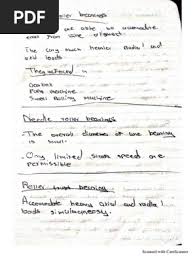 PDF
roller bearings
are able to accomodate
error from
The can much heavier radial and
axial loads
They are used in
Gearbox
Pump machine
Rolling machine
Needle roller bearings
- The overall diameter of the bearing
is small.
- Only limited shaft speeds are
permissible
Roller thrust bearing
Accomodate heavy axial and radial
loads simultaneously.
Scanned with CamScanner